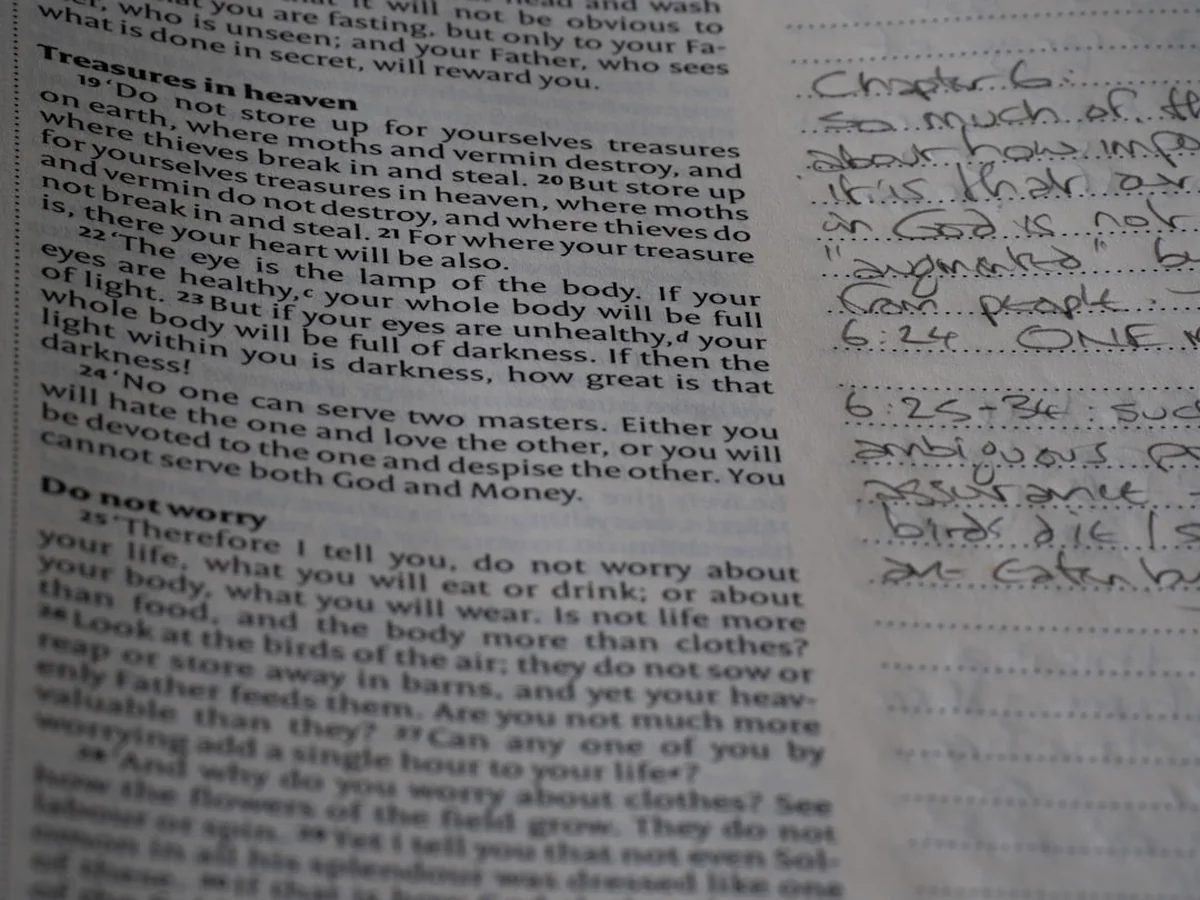 head and wash
that it will not be obvious to
that you are fasting, but only to your Fa-
who is unseen; and your Father, who sees
what is done in secret, will reward you.
Treasures in heaven
19 ‘Do not store up for yourselves treasures
on earth, where moths and vermin destroy, and
where thieves break in and steal. 20 But store up
for yourselves treasures in heaven, where moths
and vermin do not destroy, and where thieves do
not break in and steal. 21 For where your treasure
is, there your heart will be also.
22 ‘The eye is the lamp of the body. If your
eyes are healthy,c your whole body will be full
of light. 23 But if your eyes are unhealthy,d your
whole body will be full of darkness. If then the
light within you is darkness, how great is that
darkness!
24 ‘No one can serve two masters. Either you
will hate the one and love the other, or you will
be devoted to the one and despise the other. You
cannot serve both God and Money.
Do not worry
25 ‘Therefore I tell you, do not worry about
your life, what you will eat or drink; or about
your body, what you will wear. Is not life more
than food, and the body more than clothes?
26 Look at the birds of the air; they do not sow or
reap or store away in barns, and yet your heav-
enly Father feeds them. Are you not much more
valuable than they? 27 Can any one of you by
worrying add a single hour to your life e?
28 ‘And why do you worry about clothes? See
how the flowers of the field grow. They do not
labour or spin. 29 Yet I tell you that not even Sol-
omon in all his splendour was dressed like one
of these. 30 If that is how God
Chapter 6:
So much of
about how
it is that
in God is not
"augmented"
from people.
6:24 ONE
6:25-34:
ambiguous
assurance
birds die
eaten